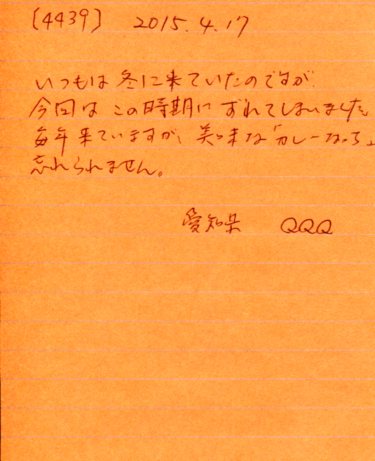 [4439] 2015.4.17
いつもは冬に来ていたのですが
今回はこの時期にずれてしまいました。
毎年来ていますが、美味な「カレーなっち」
忘れられません。
愛知県 QQQ